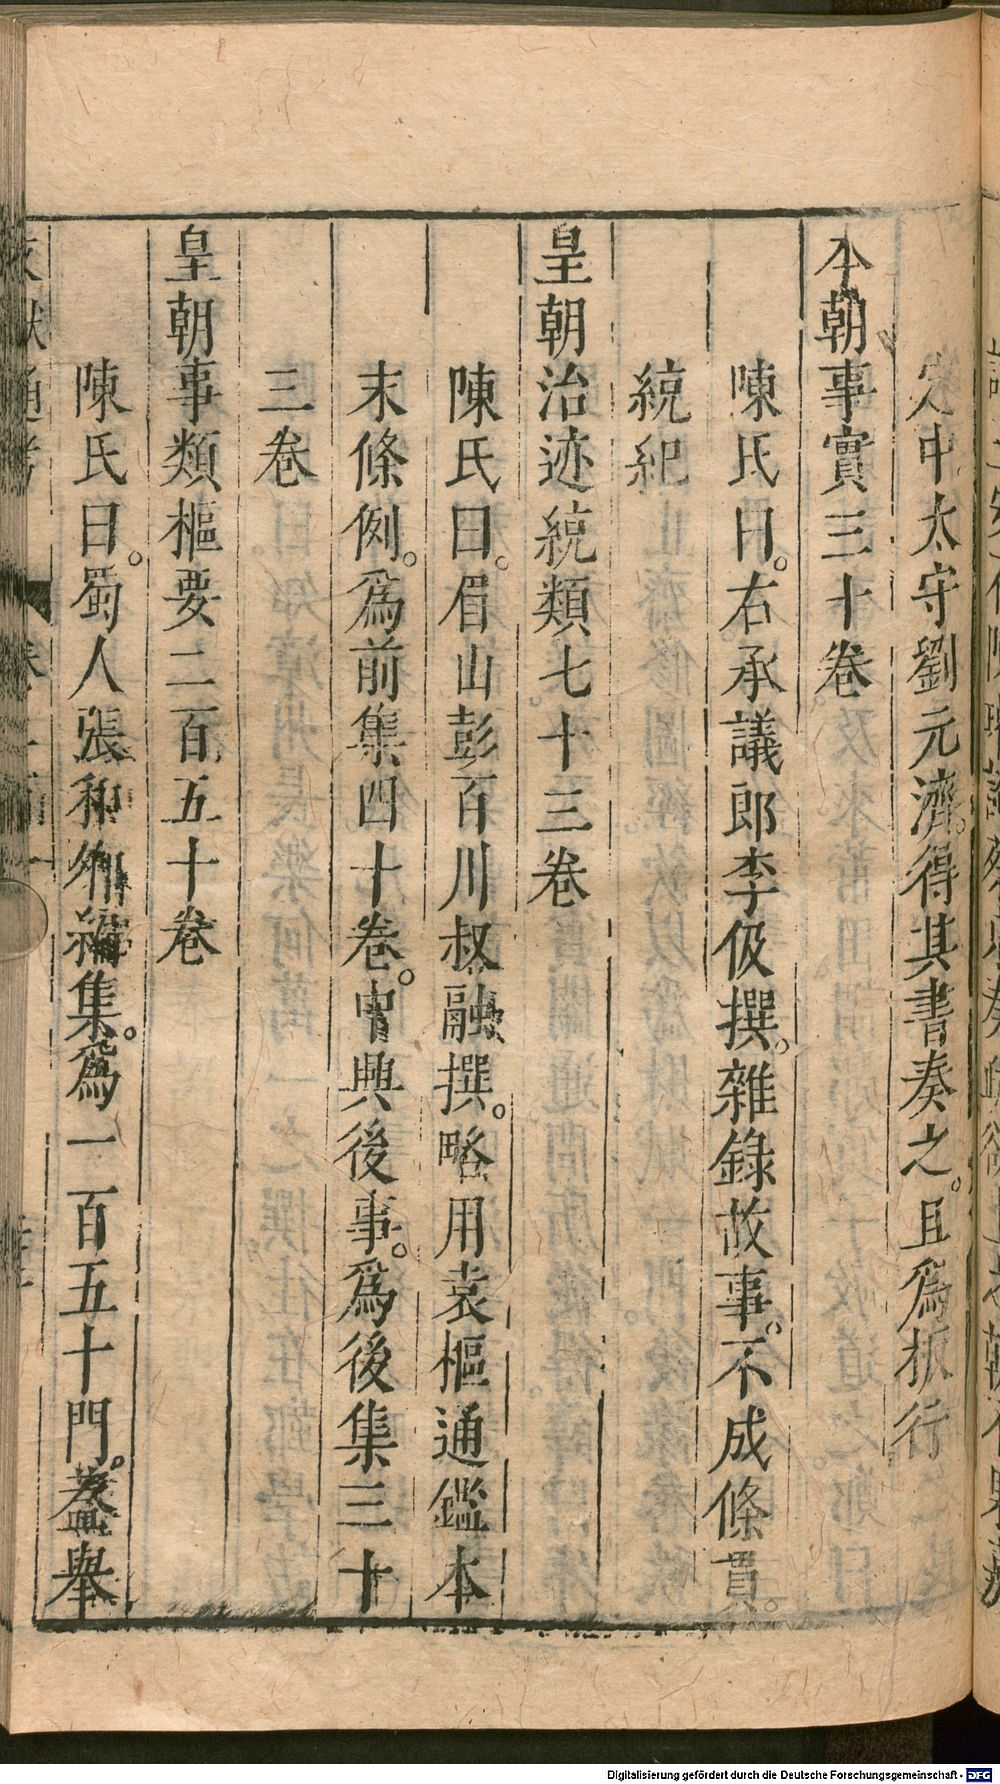 中太守劉元濟。得其書奏之。且爲板行
本朝事實三十卷
陳氏曰。右承議郎李伋撰。雜錄故事。不成條貫。
統紀
皇朝治迹統類七十三卷
陳氏曰。眉山彭百川叔融撰。略用袁樞通鑑本
末條例。爲前集四十卷。中興後事。爲後集三十
三卷
皇朝事類樞要二百五十卷
陳氏曰。蜀人張和卿編集。爲一百五十門。蓋舉
文獻通考
Digitalisierung gefördert durch die Deutsche Forschungsgemeinschaft - DFG